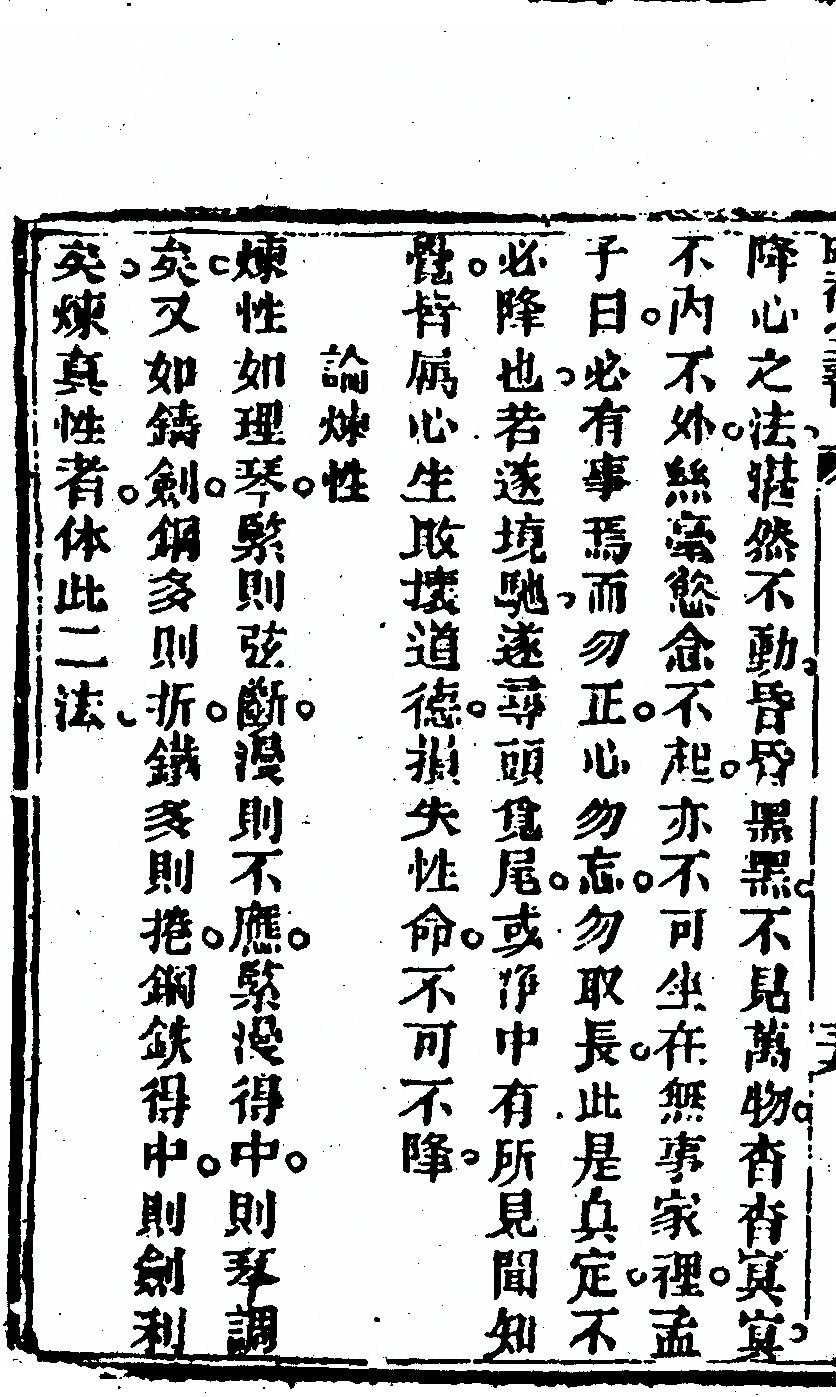 降心之法湛然不動昏昏黑黑不見萬物杳杳冥冥
不內不外絲毫慾念不起亦不可坐在無事家裡孟
子曰必有事焉而勿正心勿忘勿取長此是真定不
必降也若遂境馳遂尋頭覓尾或淨中有所見聞知
覺皆属心生敗壞道德損失性命不可不降
論煉性
煉性如理琴緊則弦斷漫則不應緊漫得中則琴調
矣又如鑄劍鋼多則折鐵多則捲鋼鉄得中則劍利
矣煉真性者体此二法